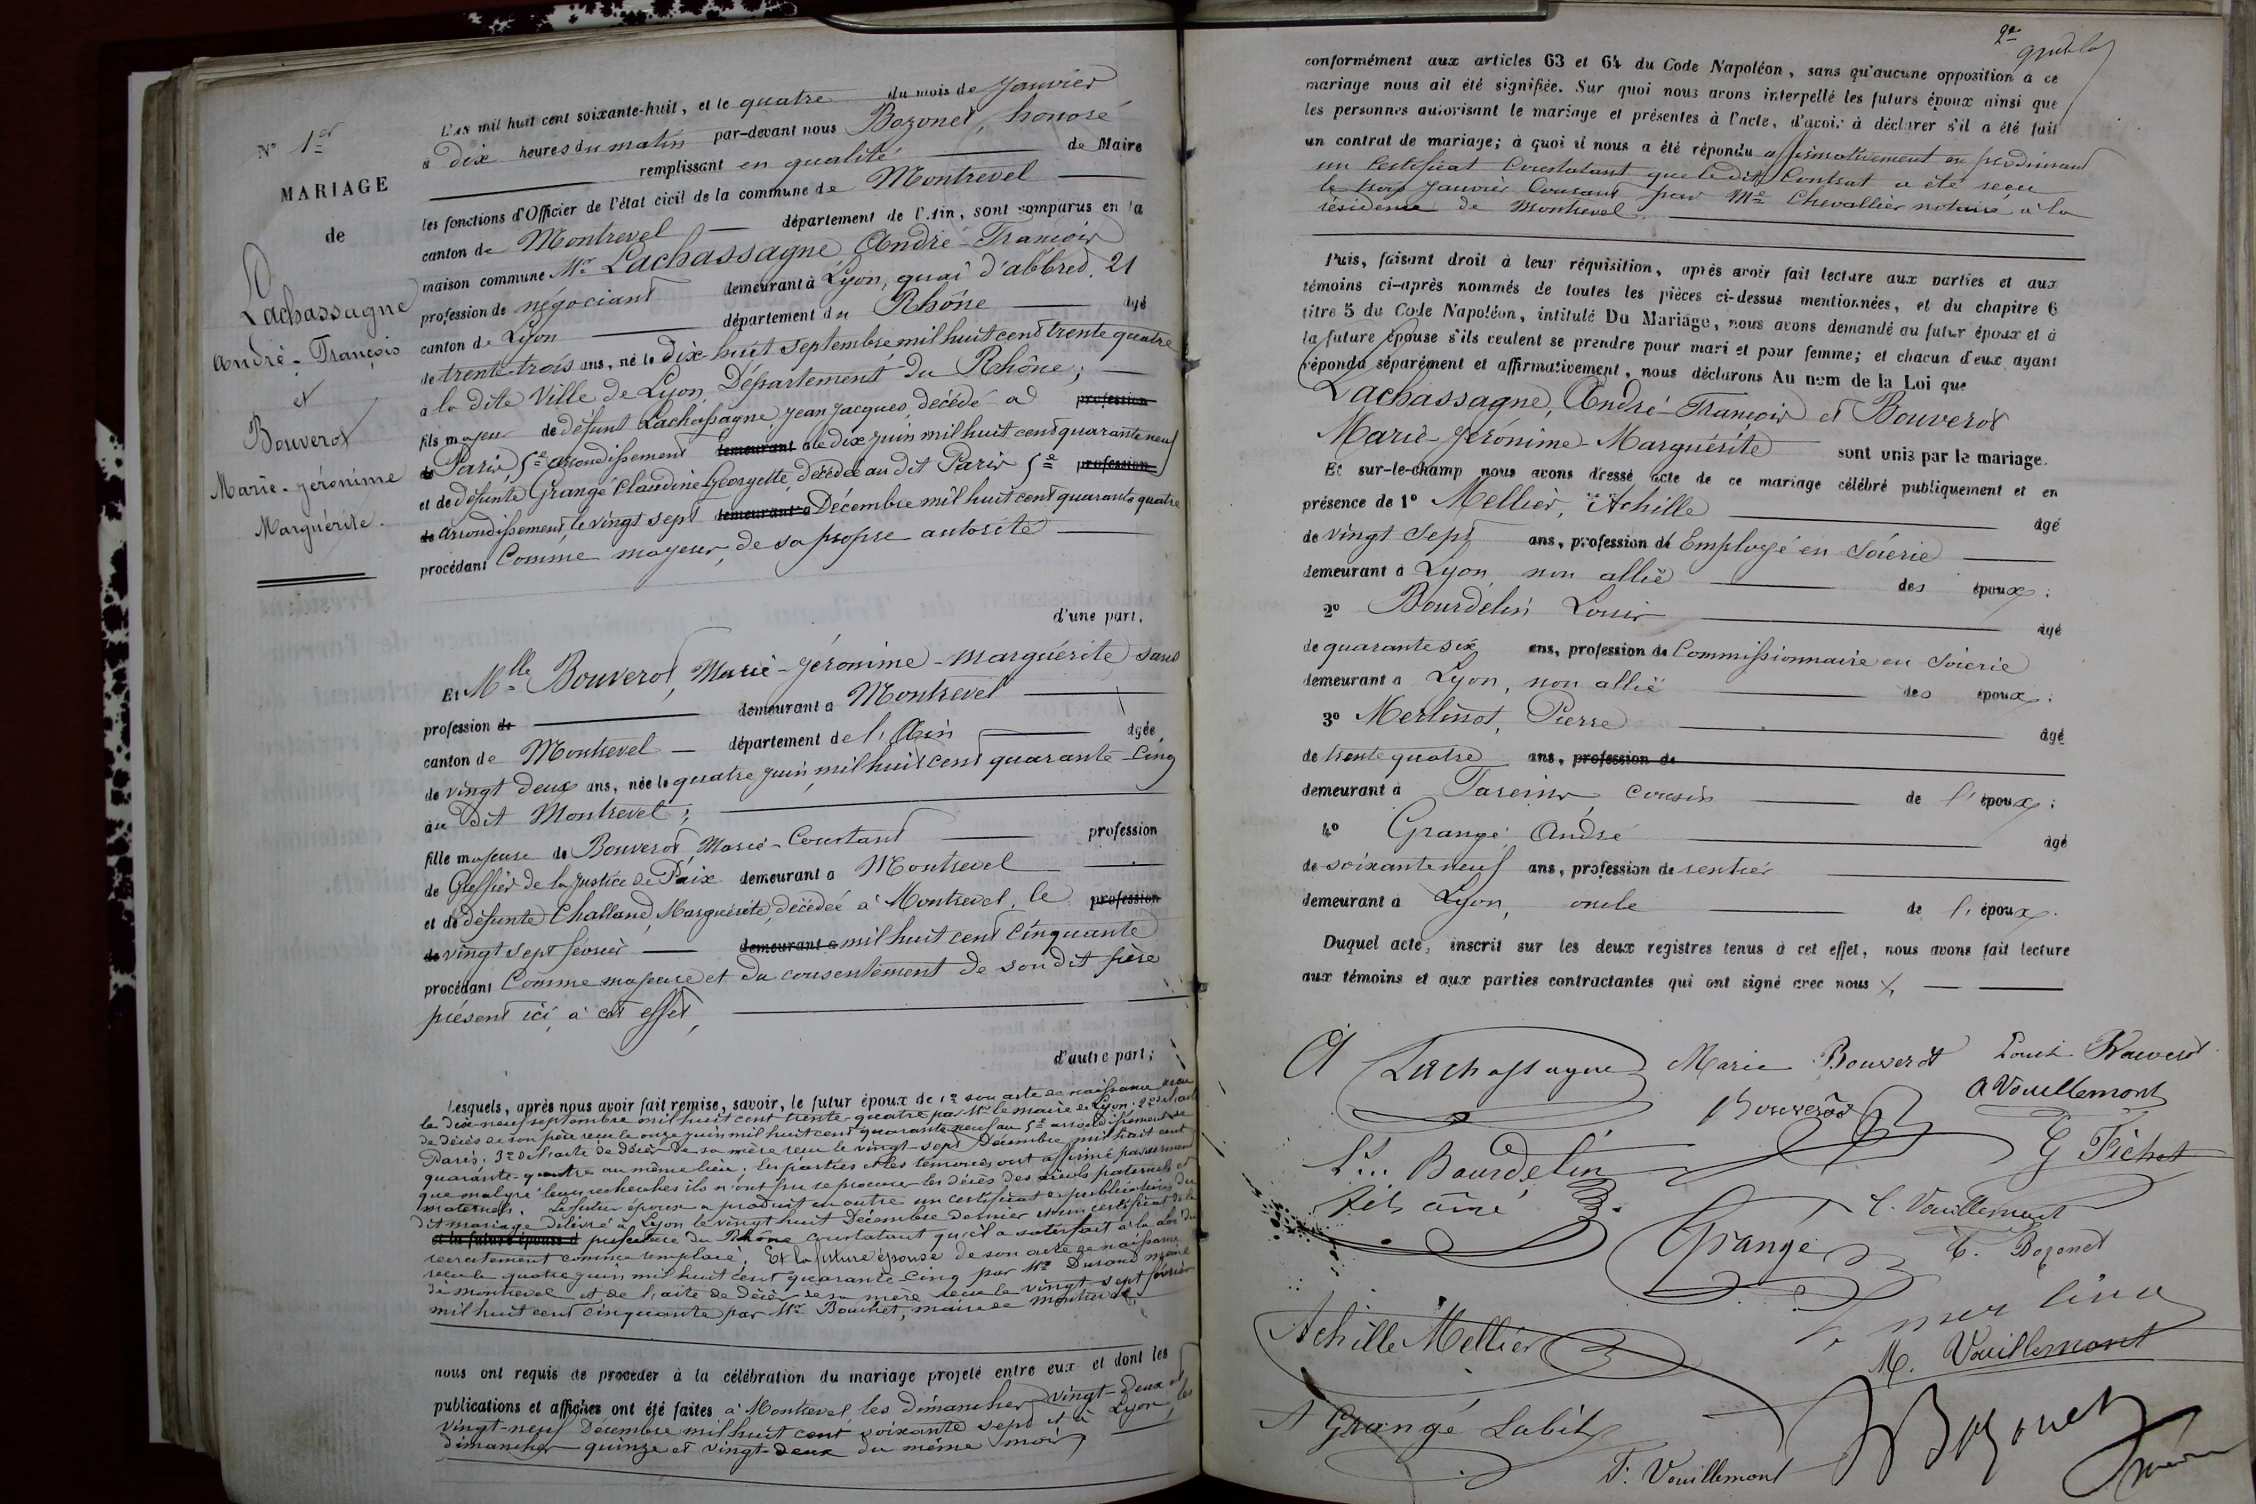 N° 1er
MARIAGE
de
Lachassagne
André-François
et
Bouverot
Marie-Jéronime
Marguérite.
L'an mil huit cent soixante-huit, et le quatre du mois de Janvier
à dix heures du matin par-devant nous Bozonet, honoré
remplissant en qualité de Maire
les fonctions d'Officier de l'état civil de la commune de Montrevel
canton de Montrevel département de l'Ain, sont comparus en la
maison commune Mr Lachassagne, André-François
profession de négociant demeurant à Lyon, quai d'albred, 21
canton de Lyon département du Rhône âgé
de trente-trois ans, né le dix-huit Septembre mil huit cent trente quatre
à la dite Ville de Lyon, Département du Rhône;
fils majeur de défunt Lachassagne, Jean Jacques, décédé à profession
de Paris 5e arrondissement demeurant à le dix juin mil huit cent quarante neuf
et de défunte Grangé Claudine-Georgette, décédée au dit Paris 5e profession
de arrondissement, le vingt sept demeurant à Décembre mil huit cent quarante quatre
procédant Comme majeur, de sa propre autorité
d'une part.
Et Mlle Bouverot, Marie-Jéronime-Marguérite sans
profession de demeurant à Montrevel
canton de Montrevel département de l'Ain âgée
de vingt deux ans, née le quatre juin, mil huit cent quarante-cinq
au dit Montrevel;
fille majeure de Bouverot, Marie-Constant profession
de Greffier de la Justice de Paix demeurant à Montrevel
et de défunte Challand, Marguérite, décédée à Montrevel, le profession
de vingt sept février demeurant à mil huit cent cinquante
procédant Comme majeure et du consentement de son dit père
présent ici à cet effet,
d'autre part;
Lesquels, après nous avoir fait remise, savoir, le futur époux de 1° son acte de naissance reçu
le dix-neuf septembre mil huit cent trente-quatre par Mr le maire de Lyon. 2° de l'acte
de décès de son père reçu le onze juin mil huit cent quarante neuf au 5e arrondissement de
Paris. 3° de l'acte de décès de sa mère reçu le vingt-sept Décembre mil huit cent
quarante-quatre au même lieu. les parties et les témoins ont affirmé par serment
que malgré leurs recherches ils n'ont pu se procurer les décès des aïeuls paternels et
maternels. Le futur époux a produit en outre un certificat de publications du
dit mariage délivré à Lyon le vingt huit Décembre dernier et un certificat de la
et la future épouse d préfecture du Rhône constatant qu'il a satisfait à la loi du
recrutement comme remplacé. Et la future épouse de son acte de naissance
reçu le quatre juin mil huit cent quarante-cinq par Mr Durand maire
de Montrevel et de l'acte de décès de sa mère reçu le vingt sept février
mil huit cent cinquante par Mr Bouchet, maire de Montrevel
nous ont requis de procéder à la célébration du mariage projeté entre eux et dont les
publications et affiches ont été faites à Montrevel, les dimanches vingt-deux et
vingt-neuf Décembre mil huit cent soixante sept et à Lyon, les
dimanches quinze et vingt-deux du même mois
conformément aux articles 63 et 64 du Code Napoléon, sans qu'aucune opposition à ce
mariage nous ait été signifiée. Sur quoi nous avons interpellé les futurs époux ainsi que
les personnes autorisant le mariage et présentes à l'acte, d'avoir à déclarer s'il a été fait
un contrat de mariage; à quoi il nous a été répondu affirmativement en produisant
un certificat constatant que le dit Contrat a été reçu
le trois Janvier Courant par Me Chevallier notaire à la
résidence de Montrevel.
Puis, faisant droit à leur réquisition, après avoir fait lecture aux parties et aux
témoins ci-après nommés de toutes les pièces ci-dessus mentionnées, et du chapitre 6
titre 5 du Code Napoléon, intitulé Du Mariage, nous avons demandé au futur époux et à
la future épouse s'ils veulent se prendre pour mari et pour femme; et chacun d'eux ayant
répondu séparément et affirmativement, nous déclarons Au nom de la Loi que
Lachassagne, André-François et Bouverot
Marie-Jéronime-Marguérite sont unis par le mariage.
Et sur-le-champ nous avons dressé acte de ce mariage célébré publiquement et en
présence de 1° Mellier, Achille âgé
de vingt sept ans, profession de Employé en Soierie
demeurant à Lyon, non allié des époux;
2° Bourdelin Louis âgé
de quarante six ans, profession de Commissionnaire en Soierie
demeurant à Lyon, non allié des époux;
3° Merlinot, Pierre âgé
de trente quatre ans, profession de
demeurant à Fareins cousin de l'époux;
4° Grangé André âgé
de soixante neuf ans, profession de rentier
demeurant à Lyon, oncle de l'époux.
Duquel acte, inscrit sur les deux registres tenus à cet effet, nous avons fait lecture
aux témoins et aux parties contractantes qui ont signé avec nous
A Lachassagne Marie Bouverot Louis Bouverot
Bouverot A Vouillemont
Ls. Bourdelin G Fichet
fils aîné C. Vouillemont
Grangé C. Bozonet
Achille Mellier
M. Vouillemont
A Grangé Labit
F. Vouillemont Bozonet
maire